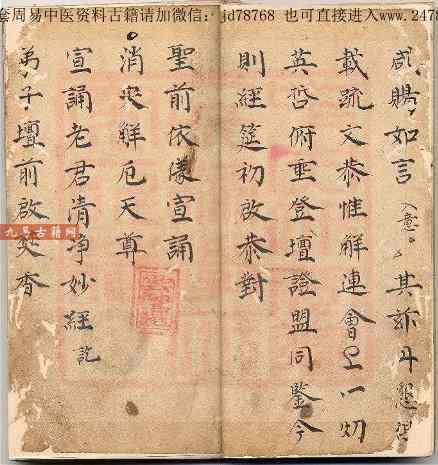 套周易中医资料古籍请加微信：jd78768 也可直接进入www.247
咸賜如言 入意 其諸丹懇具
載疏文恭惟解連會上一切
英哲俯垂登壇證盟同鑒今
則經筵初啟恭對
聖前依儀宣誦
消灾解厄天尊
宣誦老君清净妙經訖
弟子壇前啟焚香
九易古籍网